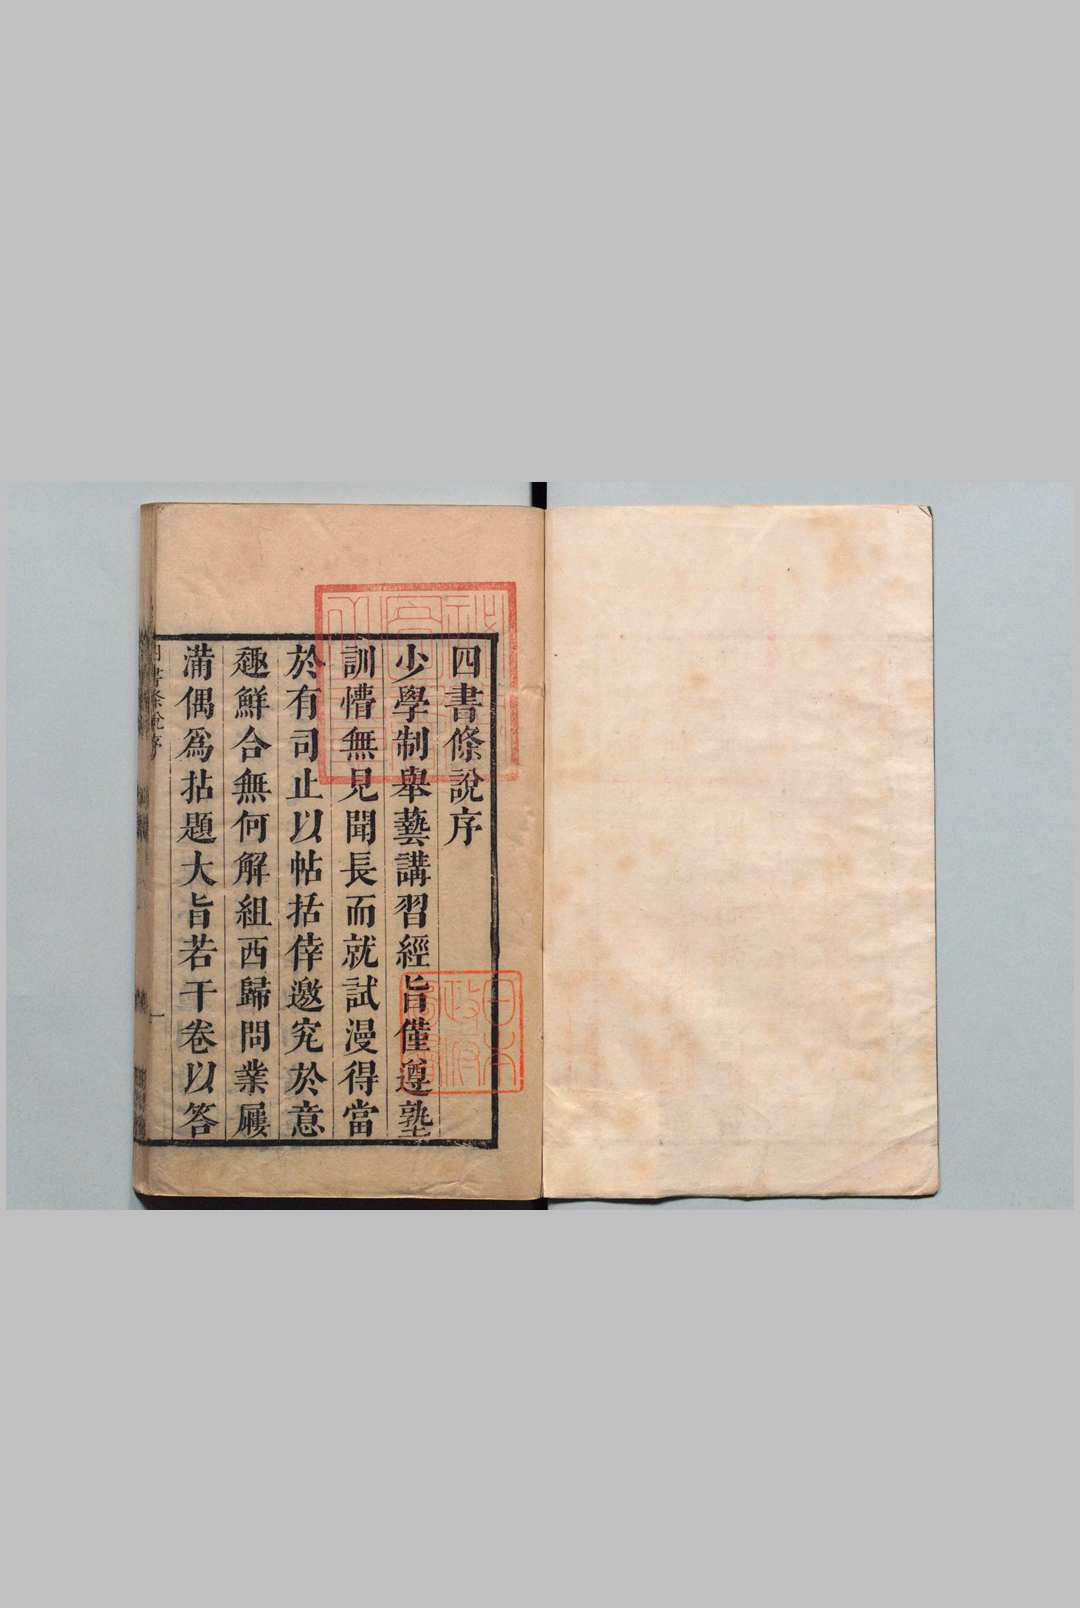 四書條說序
少學制舉藝講習經旨僅遵塾
訓懵無見聞長而就試漫得當
於有司止以帖括倖邀究於意
趣鮮合無何解組西歸問業屨
滿偶爲拈題大旨若干卷以答
四書條說序
一
日本
政府
圖書